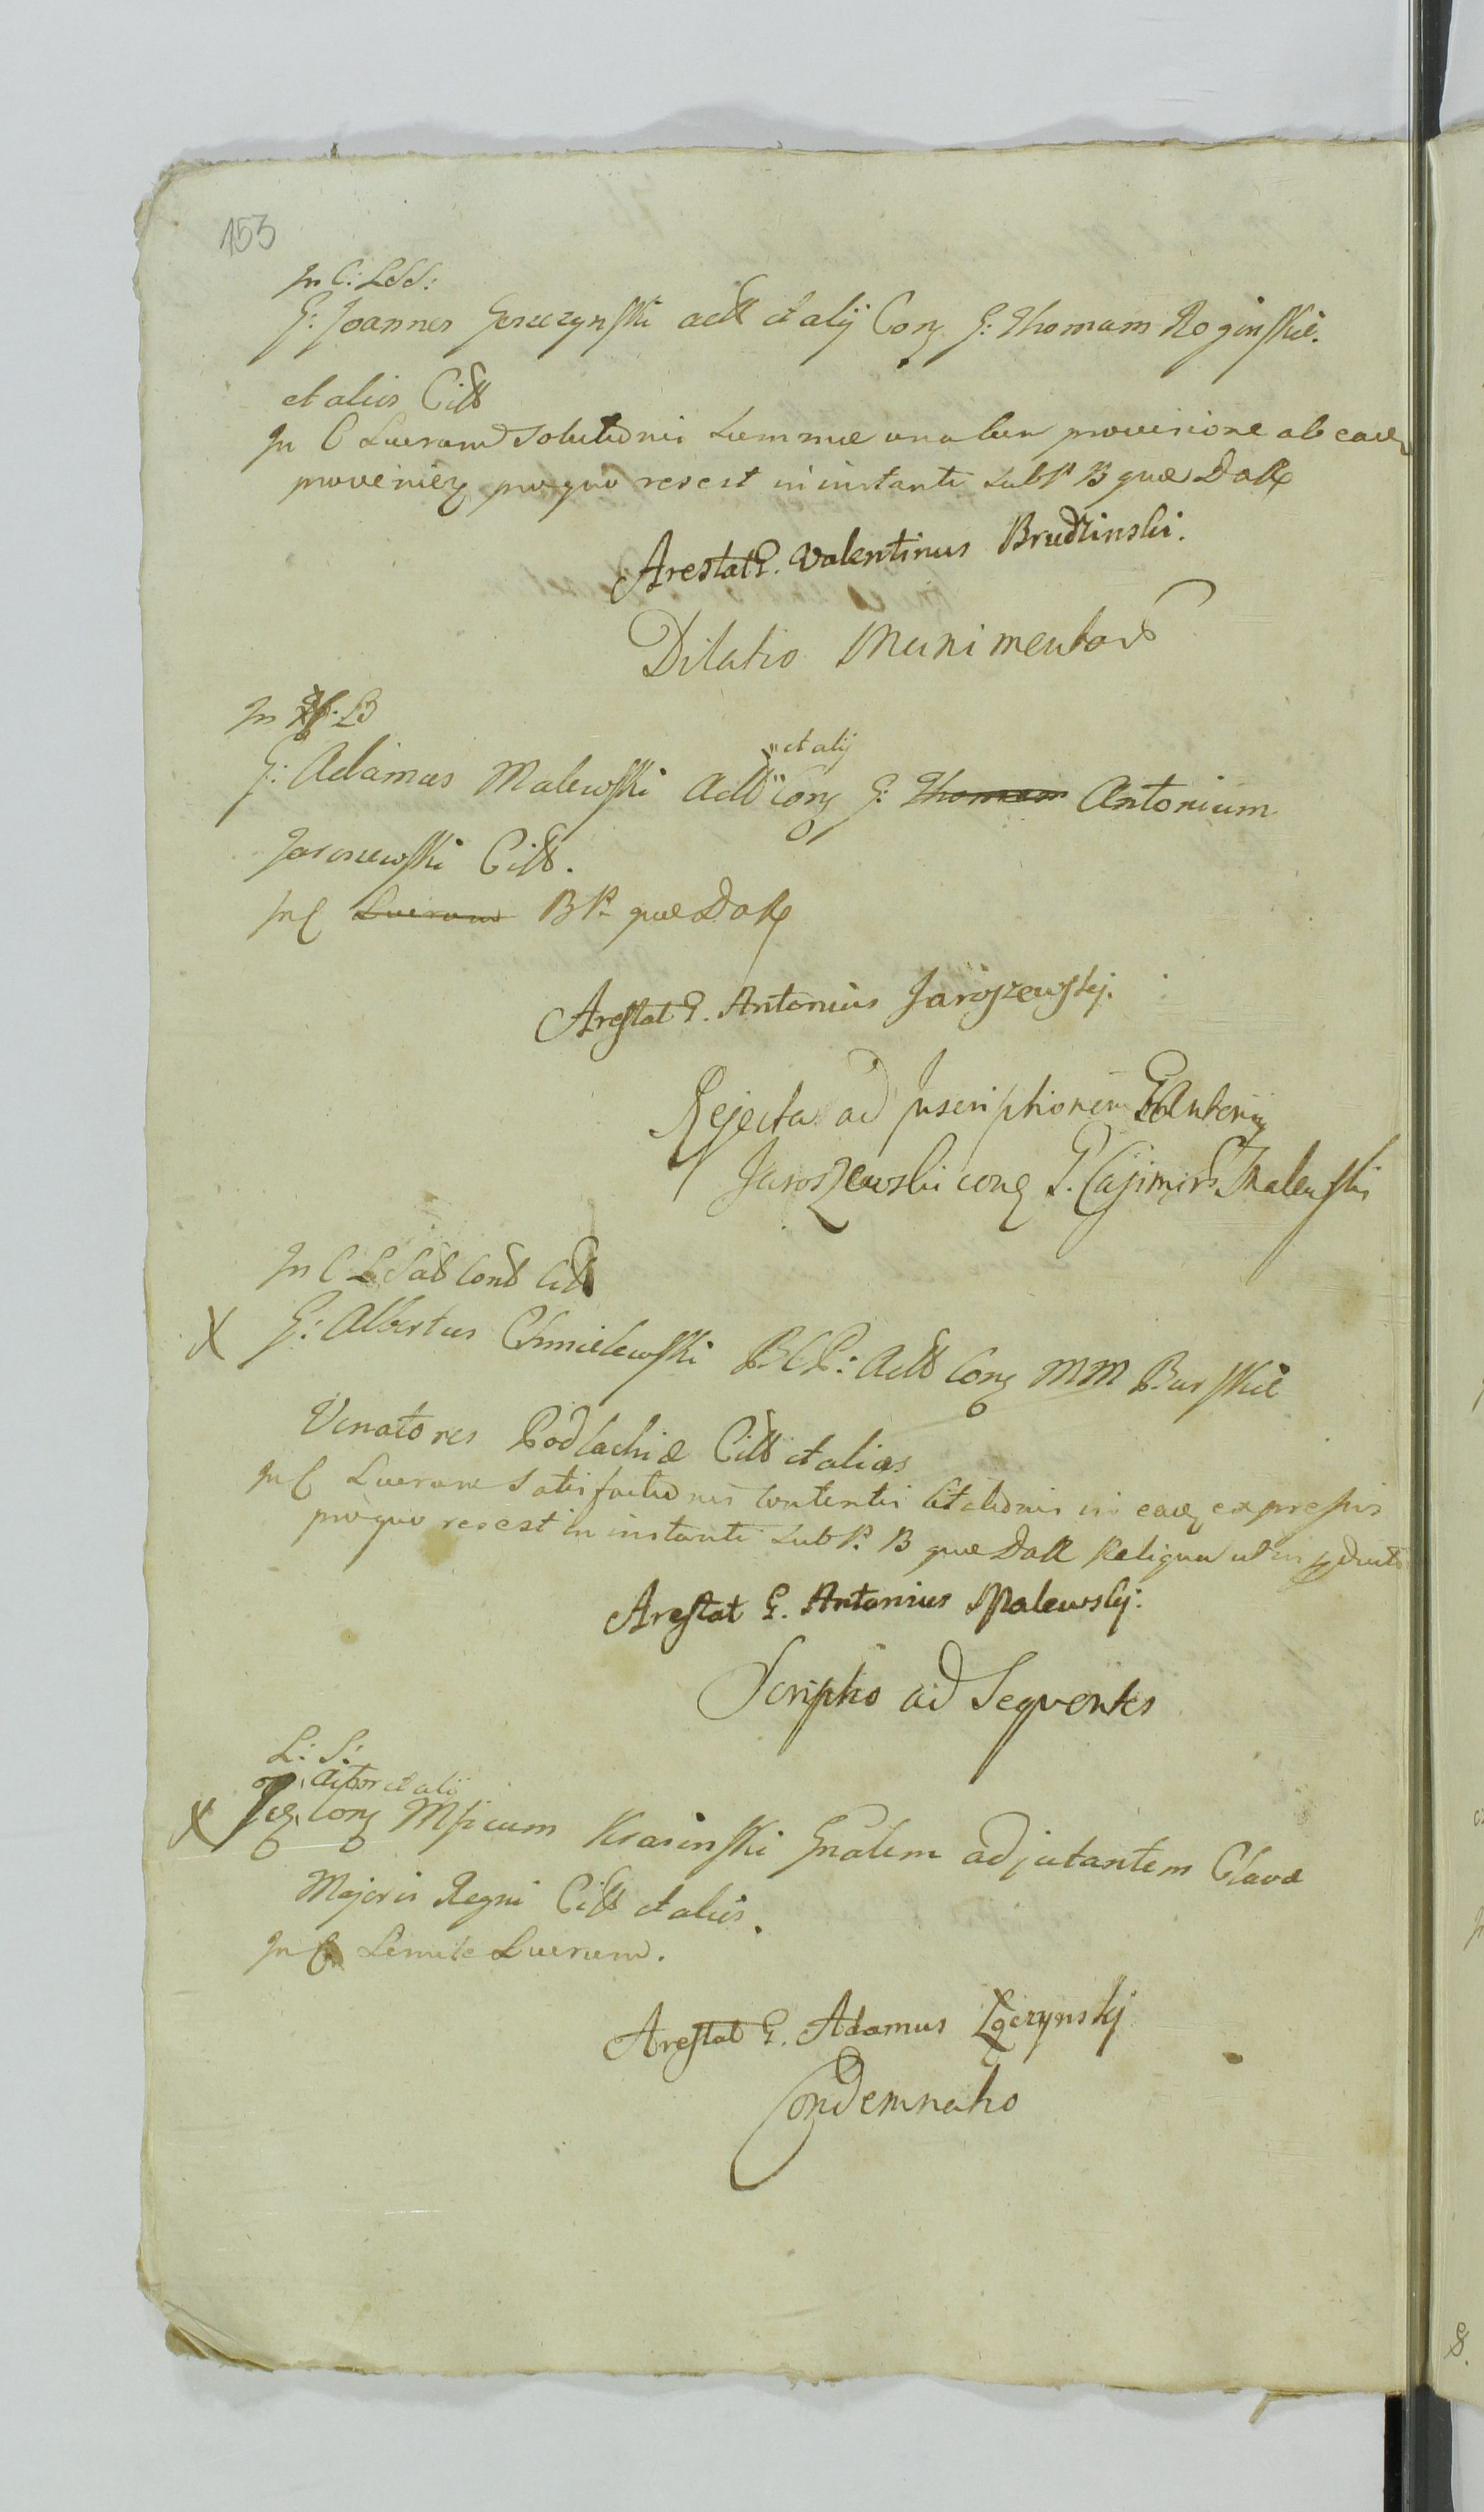 153
In C: LSS:
G: Joannes Gorczynski actt et alij Con G: Thomam Roginskie.
et alios Citt
In C Lucrand solutionis summae una cum provisione ab eadem
provenien pro quo res est in instanti sub P B quae Datt
Arestat G. Valentinus Brudzinski.
Dilatio Munimentor
In LB
et alij
G: Adamus Malewski Actt Con G: Thomam Antonium
Jaroszewski Citt.
In C Lucrand BP quae Datt
Arestat G. Antonius Jaroszewskj.
Rejecta ad Inscriptionem G Antonij
Jaroszewski con G. Casimir Malewski
In C L Sab Cond Citt
X G: Albertus Chmielewski BCP: Actt Con MM Burskie
Venatores Podlachiae Citt et alios
In C Lucran satisfactionis contentis Citationis in eadem expressis
pro quo res est in instanti sub P. B quae Datt Reliqua ut in
Arestat G. Antonius Malewskj.
Scriptio ad Sequentes
L: S:
Actor et alij
X Con Mficum Krasinski Gnalem adjutantem Clavae
Majoris Regni Citt et alios.
In C Simile Lucrum.
Arestat G. Adamus Łączynskj
Condemnatio